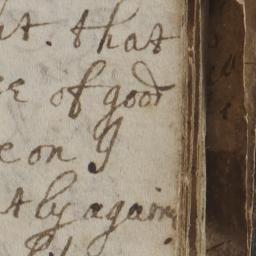 t. that
e of good
e on I
tly again